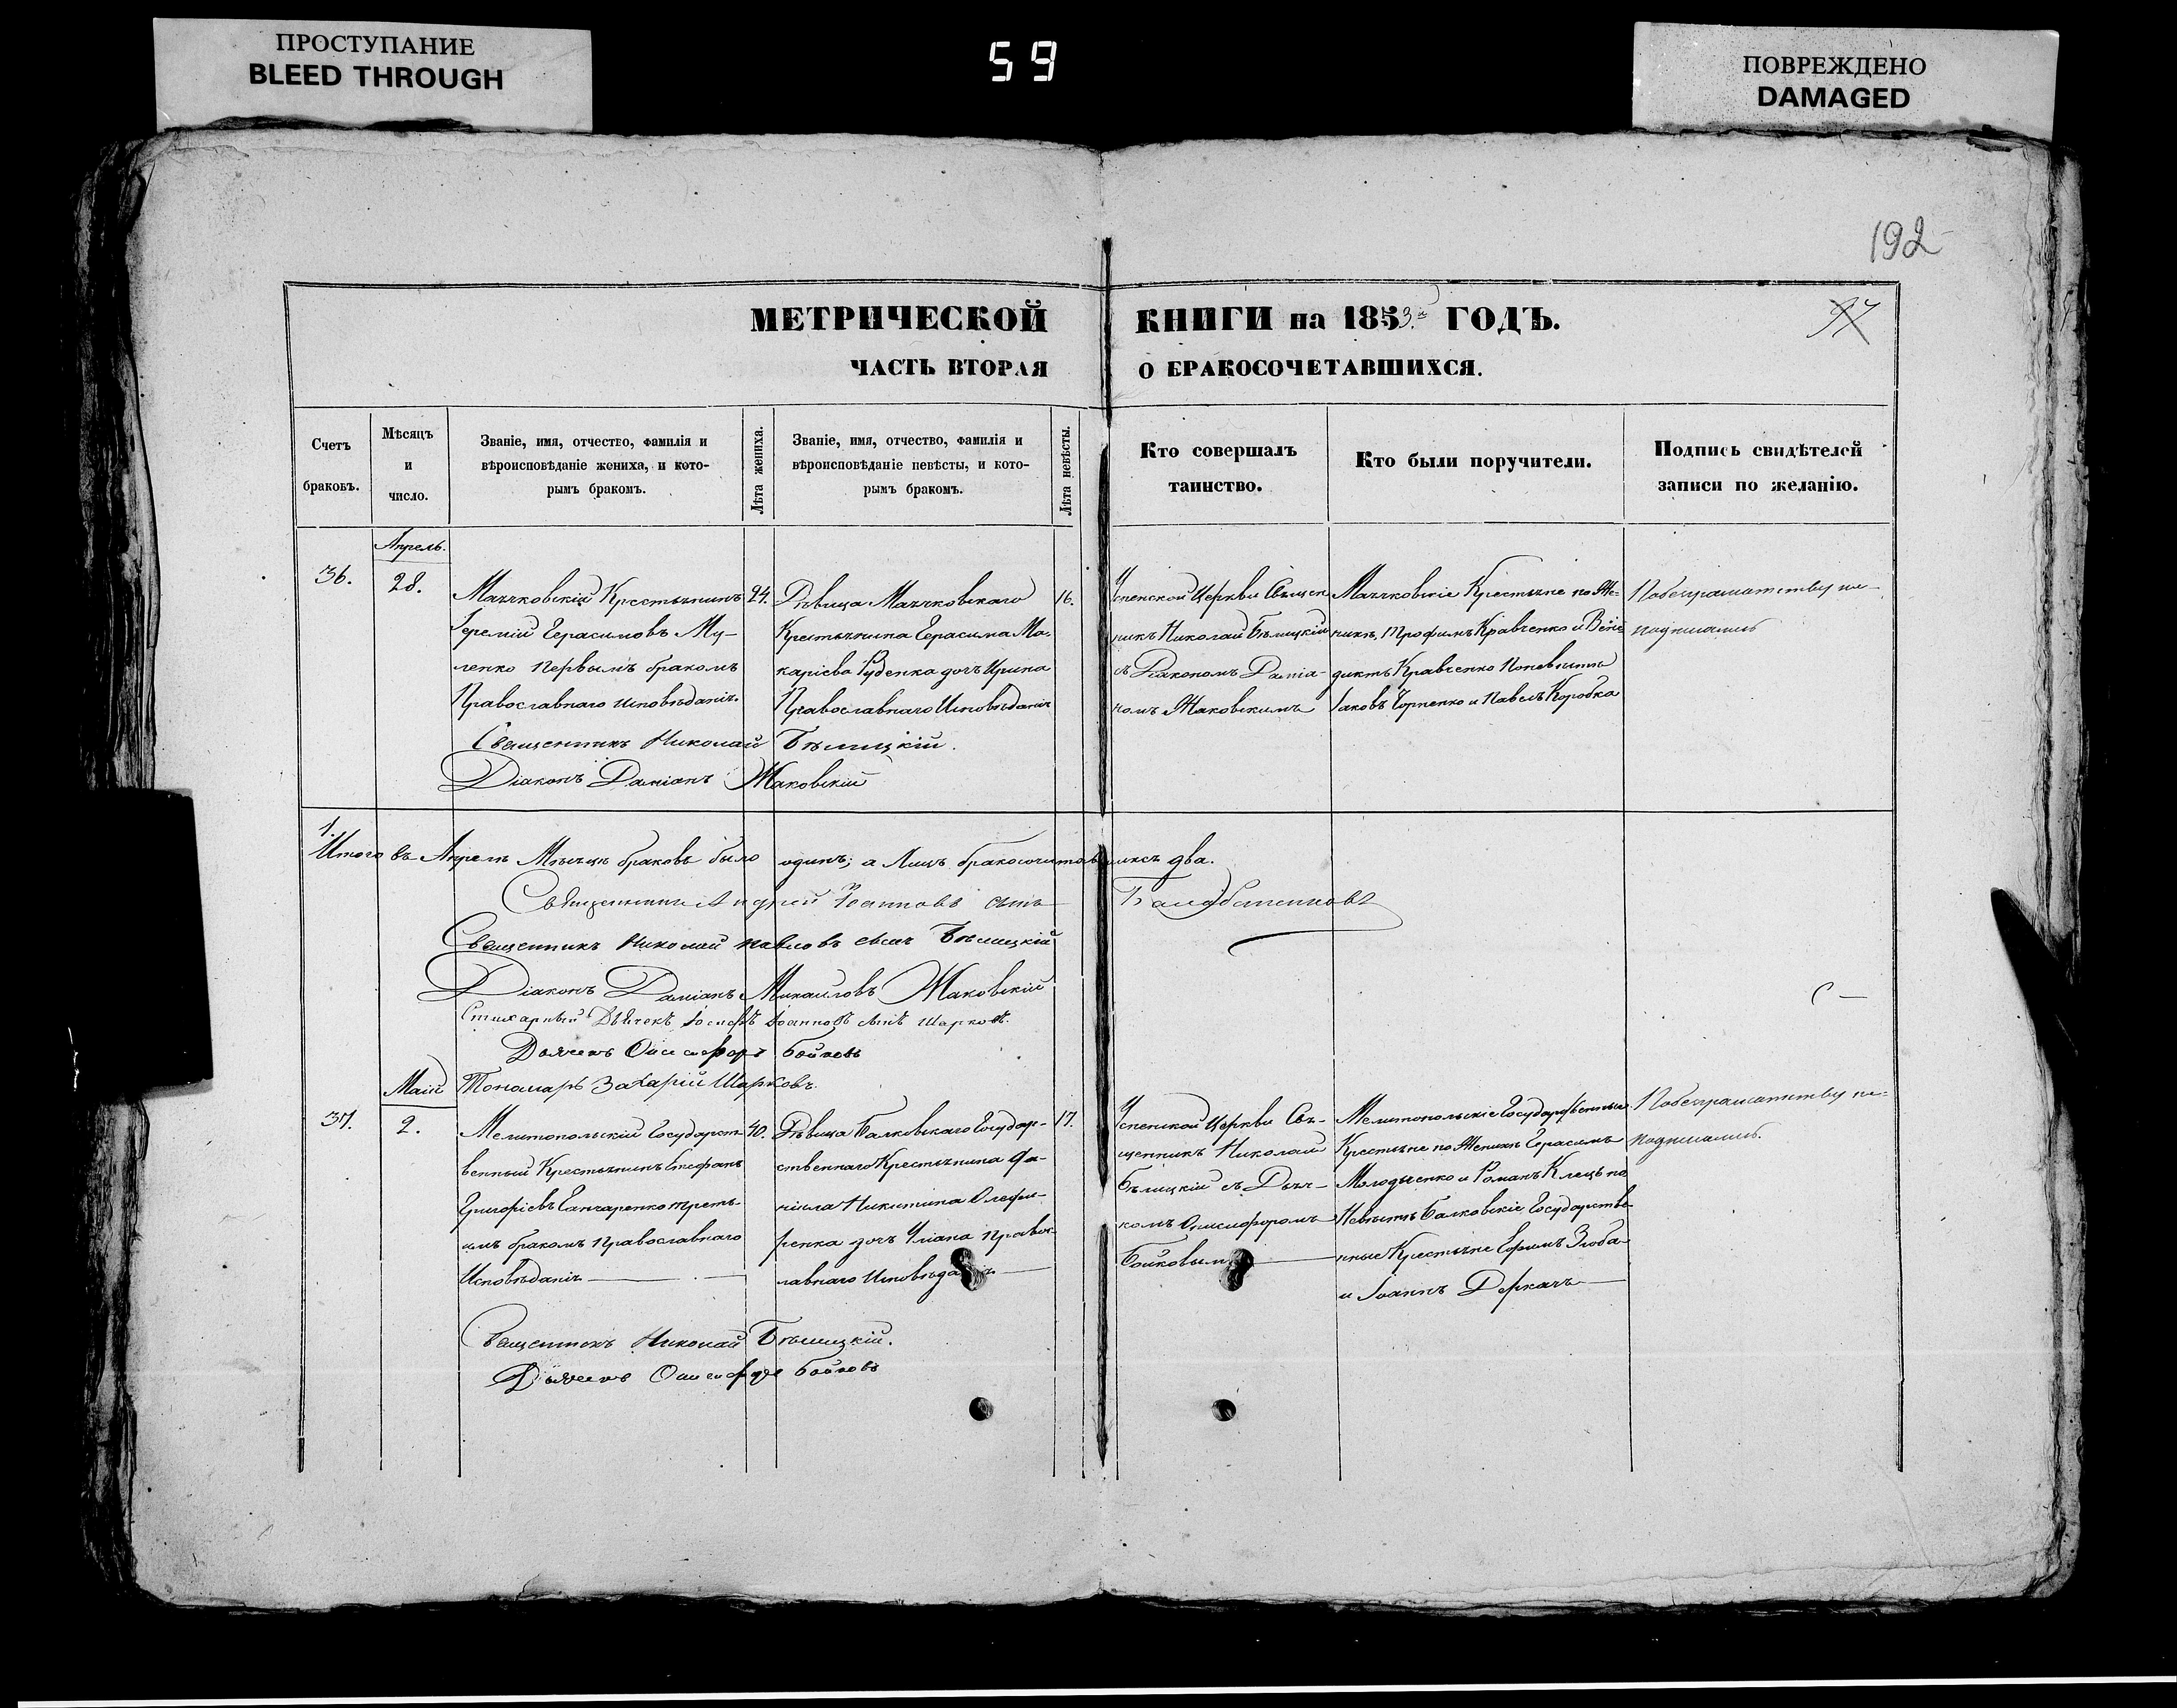 ПРОСТУПАНИЕ
BLEED THROUGH
59
ПОВРЕЖДЕНО
DAMAGED
192
МЕТРИЧЕСКОЙ КНИГИ на 1853 ГОДЪ.
97
ЧАСТЬ ВТОРАЯ О БРАКОСОЧЕТАВШИХСЯ.
Счетъ
браковъ.
Мѣсяцъ
и
число.
Званіе, имя, отчество, фамилія и
вѣроисповѣданіе жениха, и кото-
рымъ бракомъ.
Лѣта жениха.
Званіе, имя, отчество, фамилія и
вѣроисповѣданіе невѣсты, и кото-
рымъ бракомъ.
Лѣта невѣсты.
Кто совершалъ
таинство.
Кто были поручители.
Подпись свидѣтелей
записи по желанію.
36.
Апрель.
28.
Маячковскій Крестьянинъ
Іеремій Герасимовъ
ленко первымъ бракомъ
Православнаго исповѣданія.
24.
Дѣвица Маячковскаго
Крестьянина Герасима Ма-
каріева Руденка дочь Ирина
Православнаго Исповѣданія
16.
Успенской Церкви Священ
никъ Николай Бѣлицкій
съ Діакономъ Даміа-
номъ Жаковскимъ
Маячковскіе Крестьяне по Же-
нихѣ, Трофимъ Кравченко и Вене
диктъ Кравченко По невѣстѣ
Іаковъ Горпенко и Павелъ Коробка
По безграмотству не
подписались
Священникъ Николай Бѣлицкій.
Діаконъ Даміанъ Жаковскій
1.
Итого въ Апрелѣ Мѣсяцѣ браковъ было одинъ; а Лицъ бракосочитавшихсь два.
Священникъ Андрей Іоанновъ сынъ
Священникъ Николай Павловъ сынъ Бѣлицкій
Діаконъ Даміанъ Михаиловъ Жаковскій
Стихарный Дьячекъ Іосифъ Іоанновъ сынъ Шарковъ.
Дьячекъ Онисифоръ Бойковъ
Пономарь Захарій Шарковъ.
37.
Май
2.
Мелитопольскій Государст
венный Крестьянинъ Стефанъ
Григоріевъ Ганчаренко треть-
имъ бракомъ Православнаго
Исповѣданія
40.
Дѣвица Балковскаго Государ-
ственнаго Крестьянина Да-
ніила Никитина Олефи-
ренка дочь Уліана Правос-
лавнаго Исповѣданія
17.
Успенской Церкви Свя-
щенникъ Николай
Бѣлицкій съ Дьяч-
комъ Онисифоромъ
Бойковымъ
Мелитопольскіе Государственные
Крестьяне по Женихѣ Герасимъ
Молодыченко и Романъ Клецъ по
Невѣстѣ Балковскіе Государстве
нные Крестьяне Ефимъ Злоба
и Іоаннъ Деркачъ
По безграмотству не-
подписались.
Священникъ Николай Бѣлицкій.
Дьячекъ Онисифоръ Бойковъ